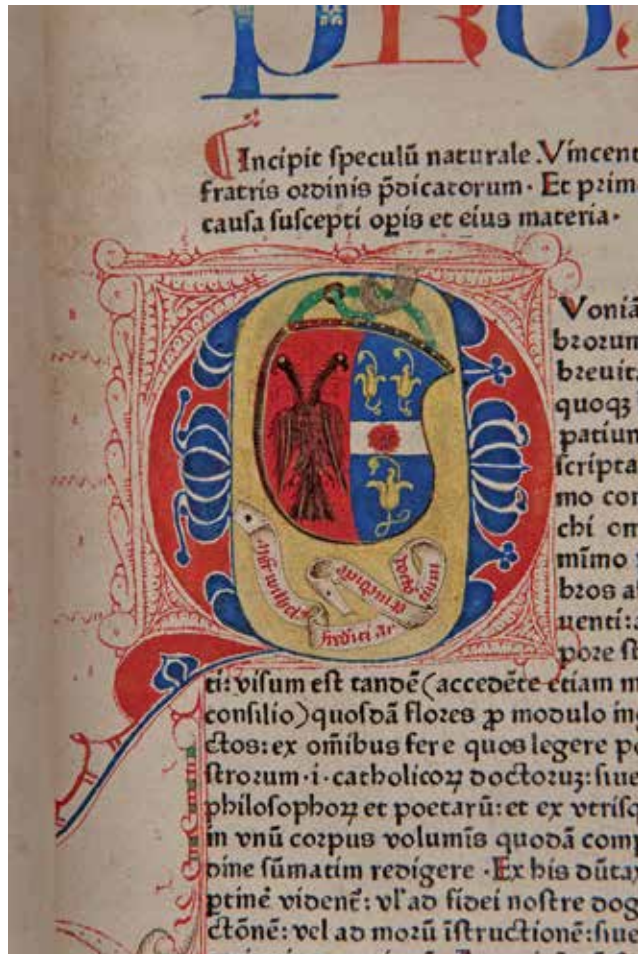 PRO
Incipit speculū naturale Vincent
fratris ordinis p̄dicatorum· Et prim
causa suscepti oꝑis et eius materia·
Q
Voniā
brorum
breuit
quoqꝫ
patiun
scripta
mo con
chi om
mīmo
bros a
uenti:
pore st
medici ar
ti: visum est tandē (accedēte etiam m
consilio) quosdā flores ꝓ modulo in
ctos: ex om̄ibus fere quos legere po
strorum·i·catholicoꝝ doctoruꝫ: siue
philosophoꝝ et poetarū: et ex vtrisq
in vnū corpus volumīs quodā comp
dine sūmatim redigere·Ex his dūtax
ptinē videnē: vl' ad fidei nostre dog
ctōnē: vel ad morū īstructionē: siue